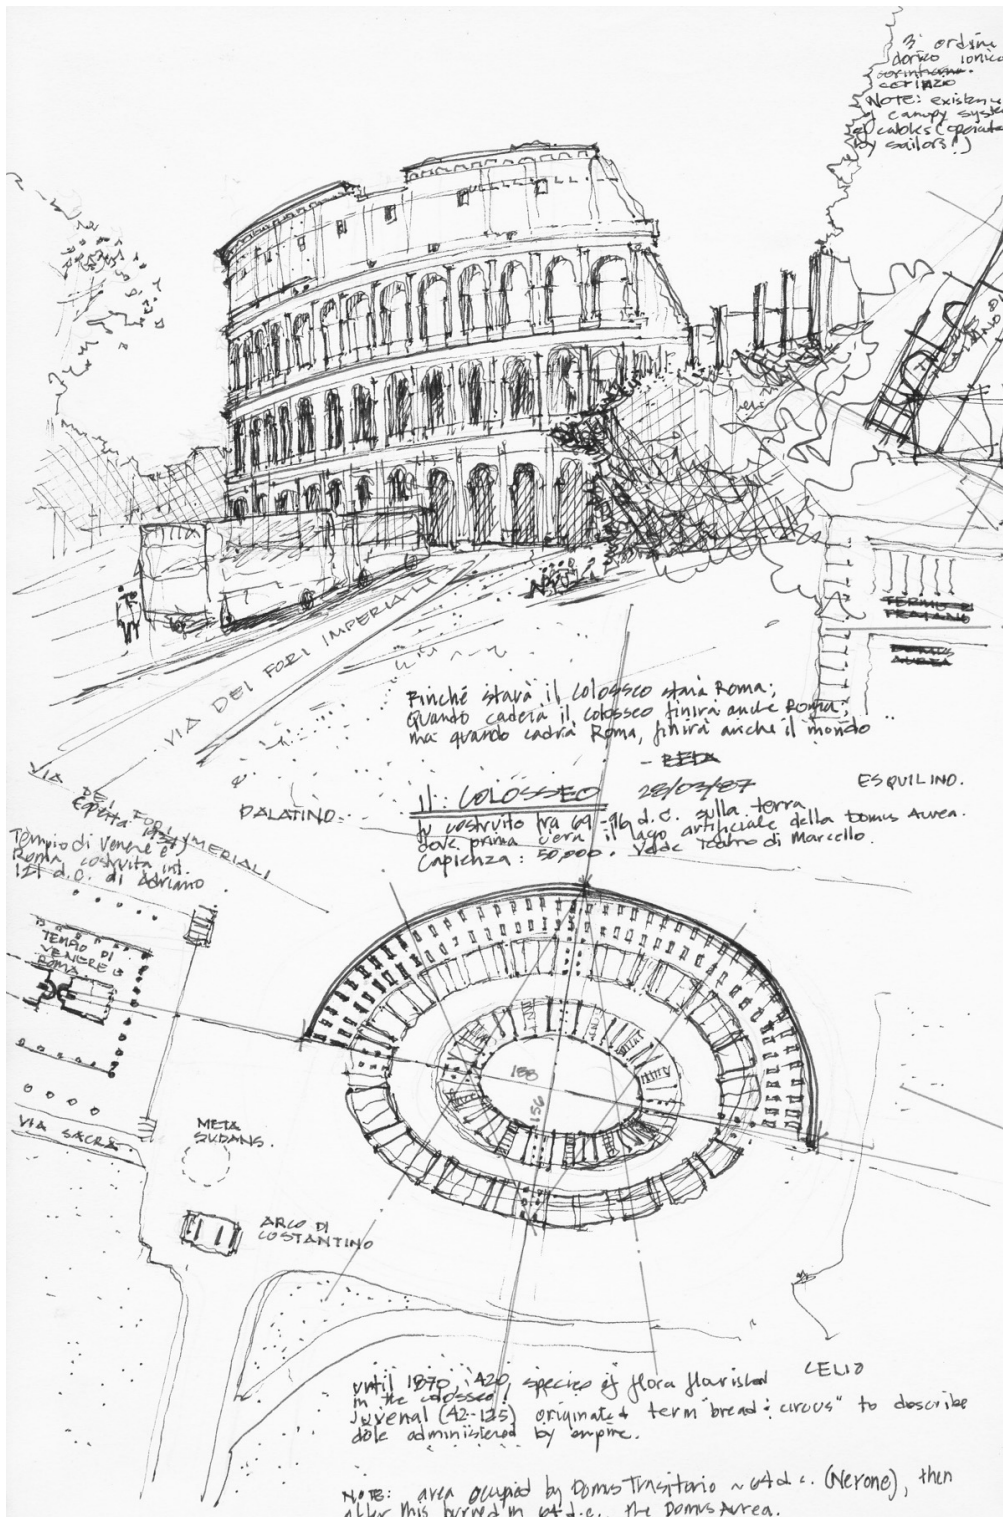 3 ordini
dorico ionico
corinzio
NOTE: existence
of canopy system
of cables (operated
by sailors!)
VIA DEI FORI IMPERIALI
Finché starà il colosseo starà Roma;
quando caderà il colosseo finirà anche Roma;
ma quando cadrà Roma, finirà anche il mondo
- BEDA
ESQUILINO.
PALATINO.
il COLOSSEO 28/03/87
fu costruito fra 69-96 d.c. sulla terra
dove prima c'era il lago artificiale della Domus Aurea.
Capienza: 50,000. Vede Teatro di Marcello.
VIA DEI FORI IMERIALI
aperta
Tempio di Venere e
Roma, costruita int.
121 d.C. di Adriano
TEMPIO DI
VENERE E
ROMA
188
156
VIA SACRA
META
SUDANS.
ARCO DI
COSTANTINO
CELIO
until 1870, 420 species of flora flourished
in the colosseo!
Juvenal (42-125) originated term "bread & circus" to describe
dole administered by empire.
NOTE: area occupied by Domus Transitorio ~ 64 d.c. (Nerone), then
after this burned in 64 d.c. the Domus Aurea.